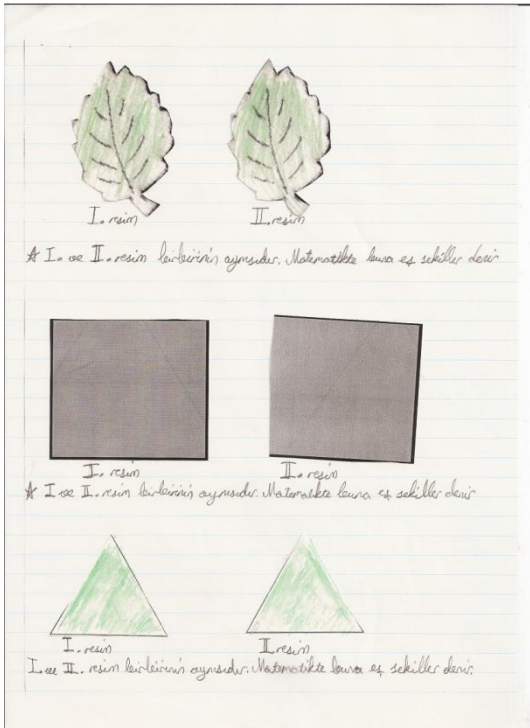 I. resim II. resim
☆ I. ve II. resim birbirinin aynısıdır. Matematikte buna eş şekiller denir
I. resim II. resim
☆ I ve II. resim birbirinin aynısıdır. Matematikte buna eş şekiller denir
I. resim II resim
I. ve II. resim birbirinin aynısıdır. Matematikte buna eş şekiller denir.